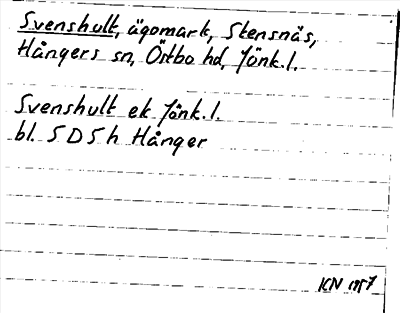 Svenshult, ägomark, Stensnäs,
Hångers sn, Östbo hd, Jönk.l.
Svenshult ek Jönk.l.
bl. 5D5h Hånger
KN 1957